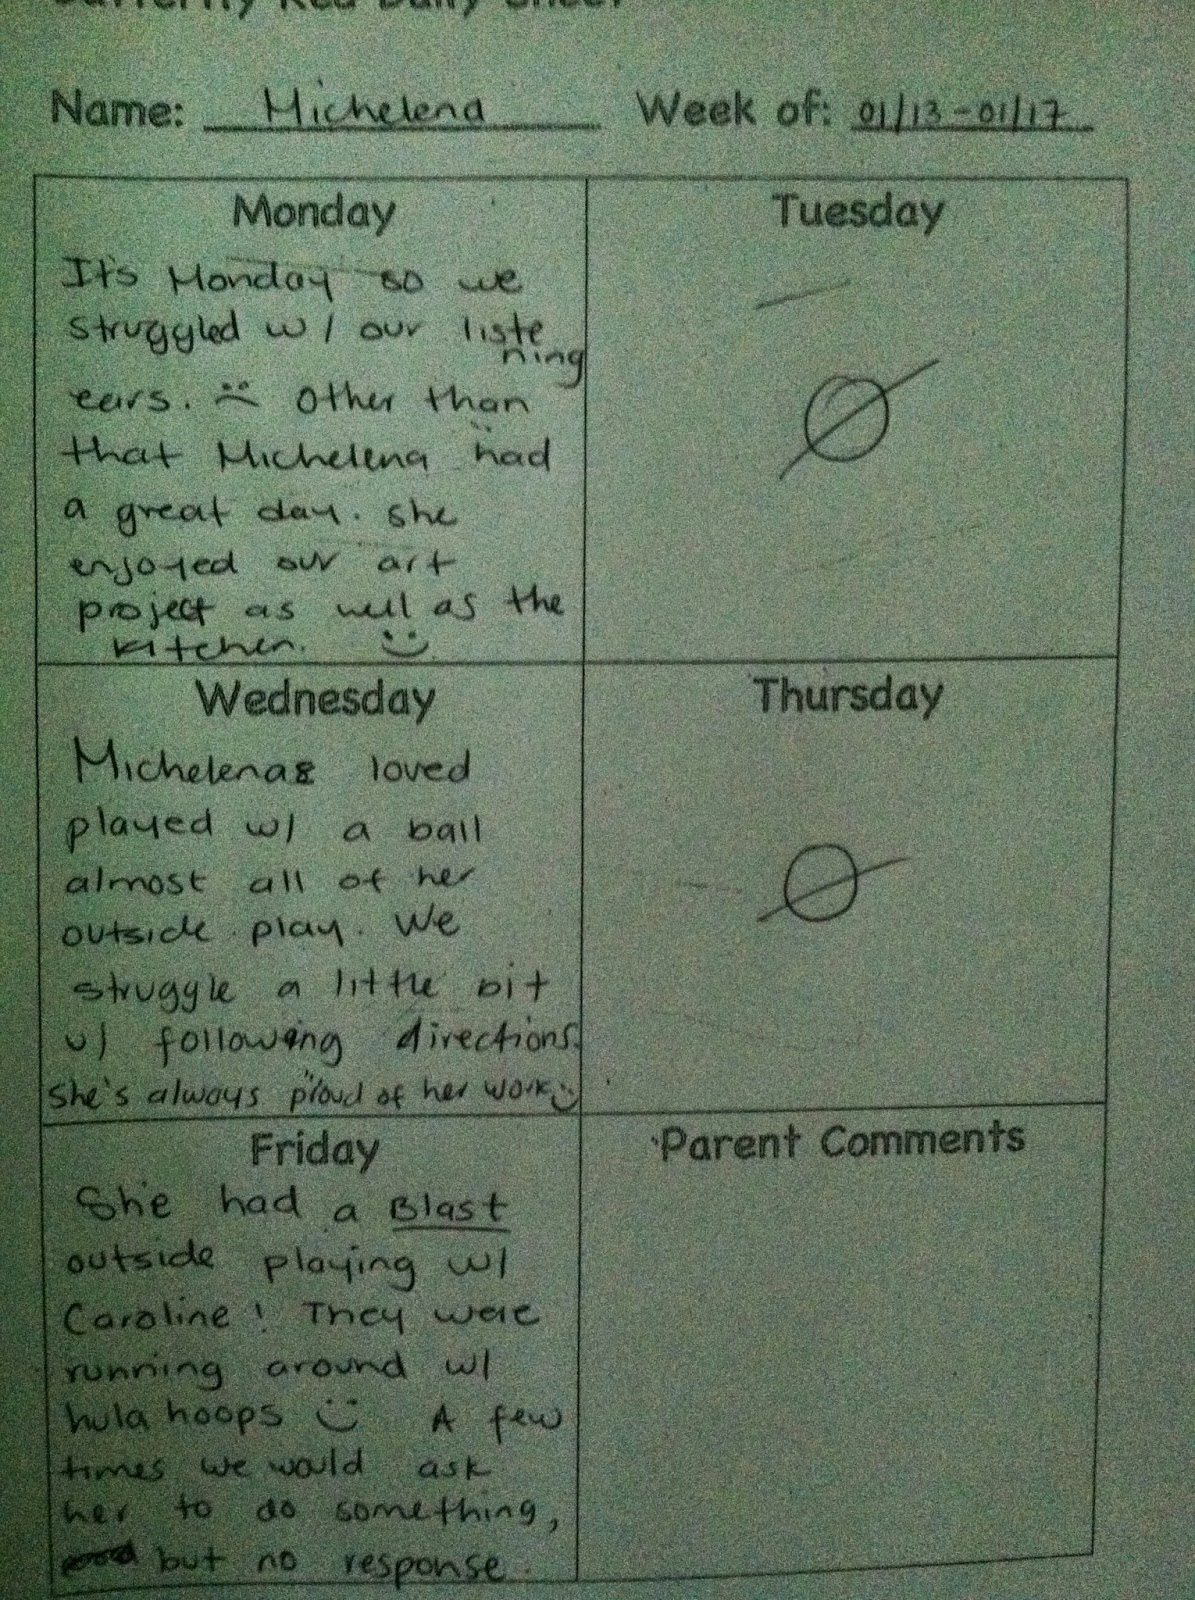 Butterfly Red Daily Sheet
Name: Michelena Week of: 01/13-01/17
Monday
It's Monday so we
struggled w/ our liste
ning
ears. :( Other than
that Michelena had
a great day. she
enjoyed our art
project as well as the
kitchen. :)
Tuesday
Wednesday
Michelena loved
played w/ a ball
almost all of her
outside play. We
struggle a little bit
w/ following directions.
She's always proud of her work :)
Thursday
Friday
She had a Blast
outside playing w/
Caroline! They were
running around w/
hula hoops :) A few
times we would ask
her to do something,
but no response.
Parent Comments